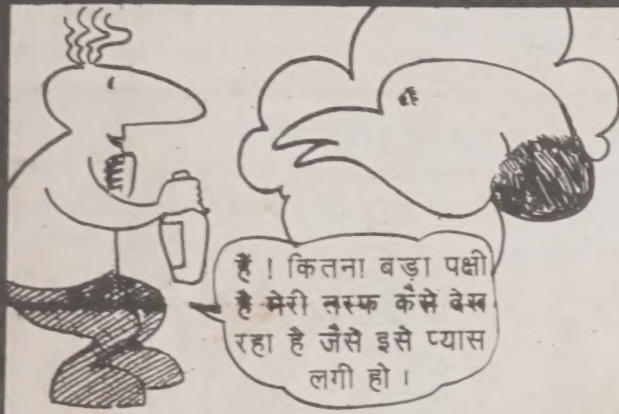 हैं ! कितना बड़ा पक्षी
है मेरी तरफ कैसे देख
रहा है जैसे इसे प्यास
लगी हो ।